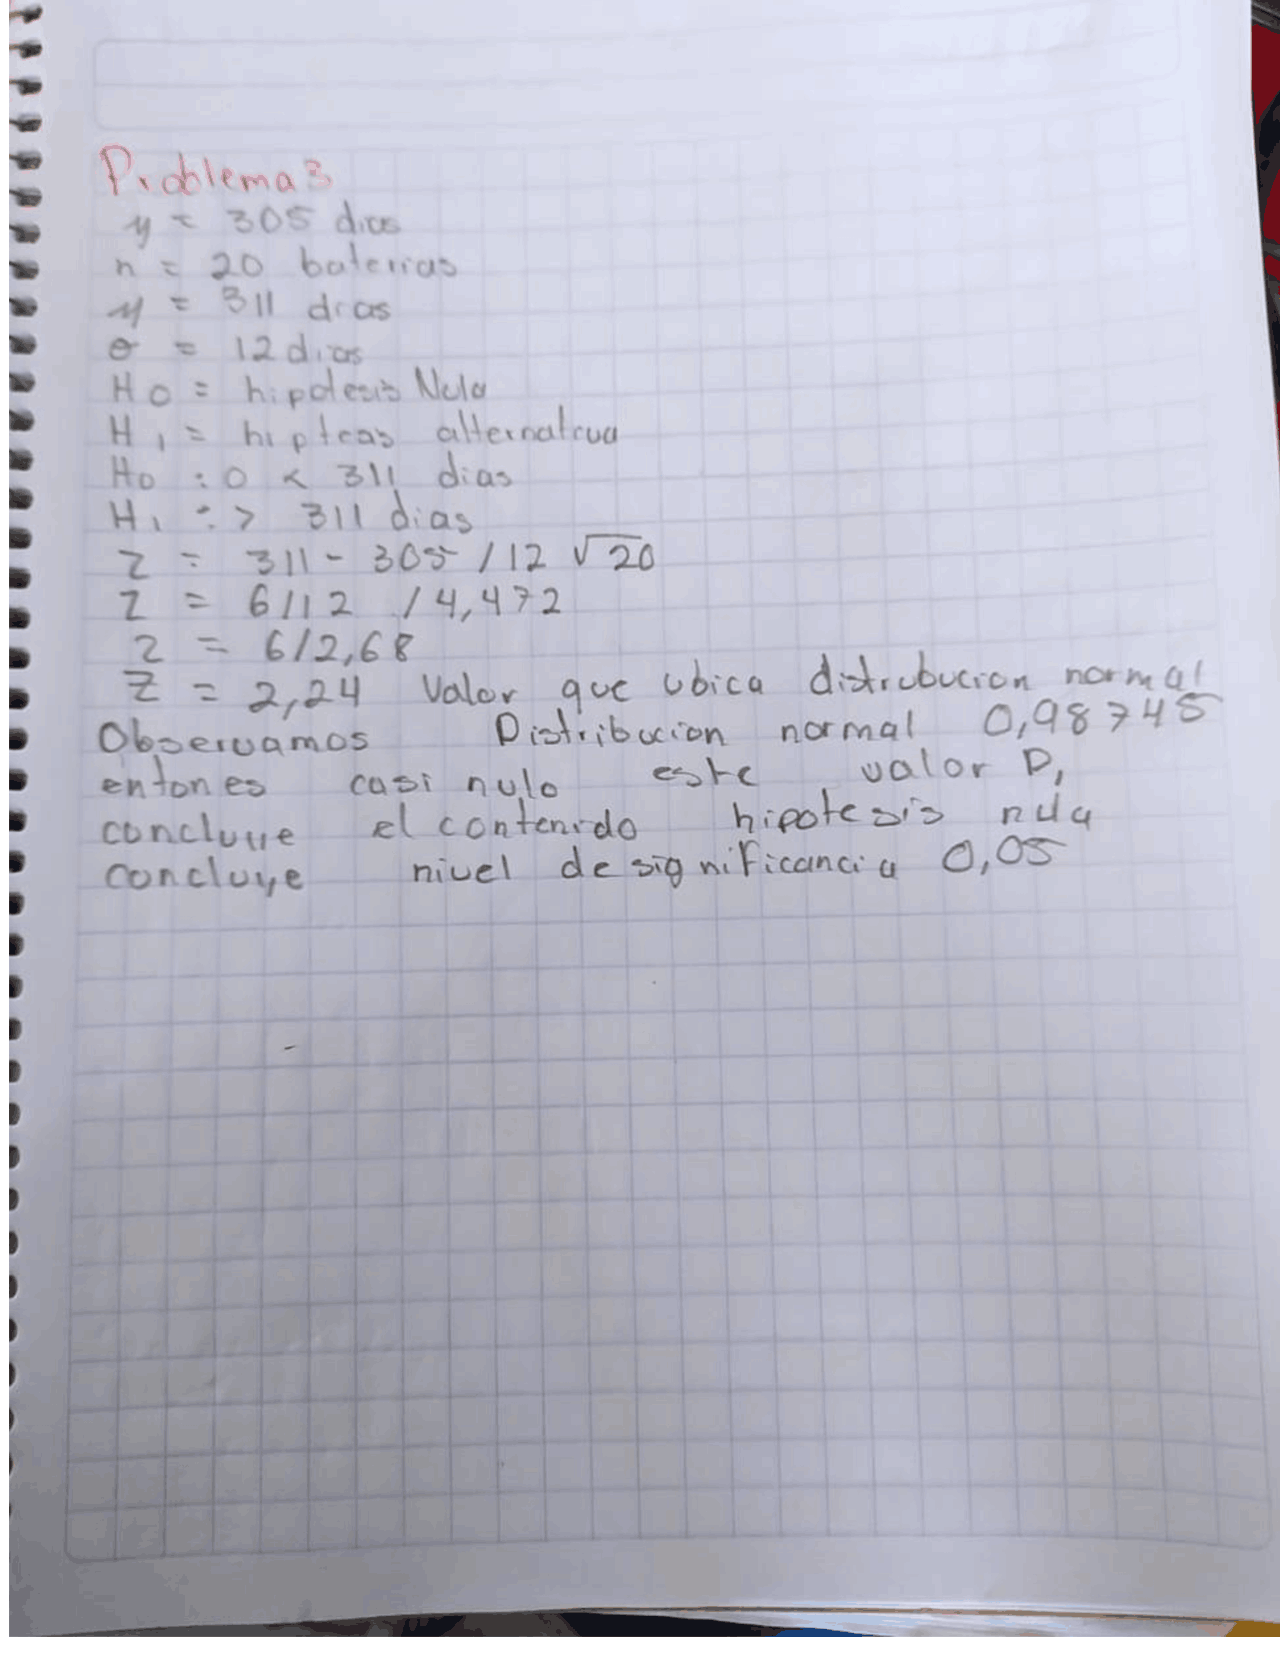 Problema 3
μ = 305 dias
n = 20 baterias
μ = 311 dias
σ = 12 dias
H0 = hipotesis Nula
H1 = hipteas alternatrua
H0 : 0 < 311 dias
H1 : > 311 dias
Z = 311 - 305 / 12 √20
Z = 6/12 / 4,472
Z = 6/2,68
Z = 2,24 Valor que ubica distrubucion normal
Observamos Distribucion normal 0,98745
entones casi nulo este valor P,
concluye el contenido hipotesis nula
concluye nivel de significancia 0,05